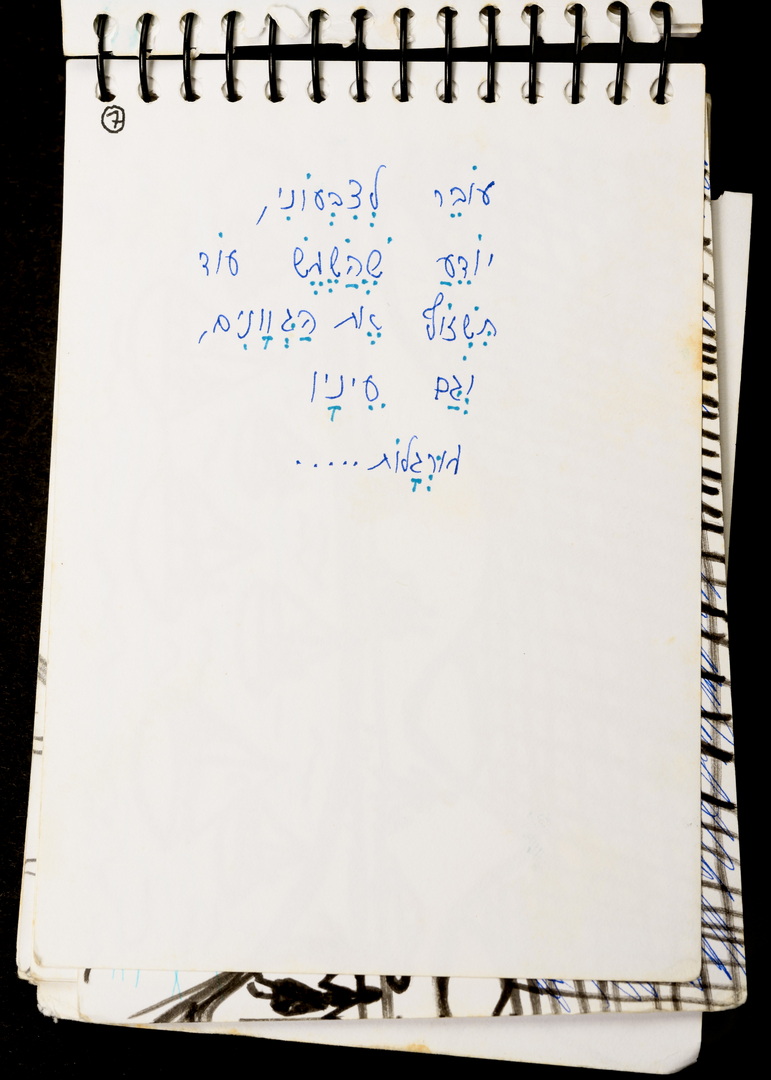 7
עוֹבֵר לְצִבְעוֹנִי,
יוֹדֵעַ שֶׁהַשֶּׁמֶשׁ עוֹד
תִּשְׁזוֹף אֶת הַגְּוָונִים,
וְגַם עֵינָיו
מוּרְגָלוֹת.....